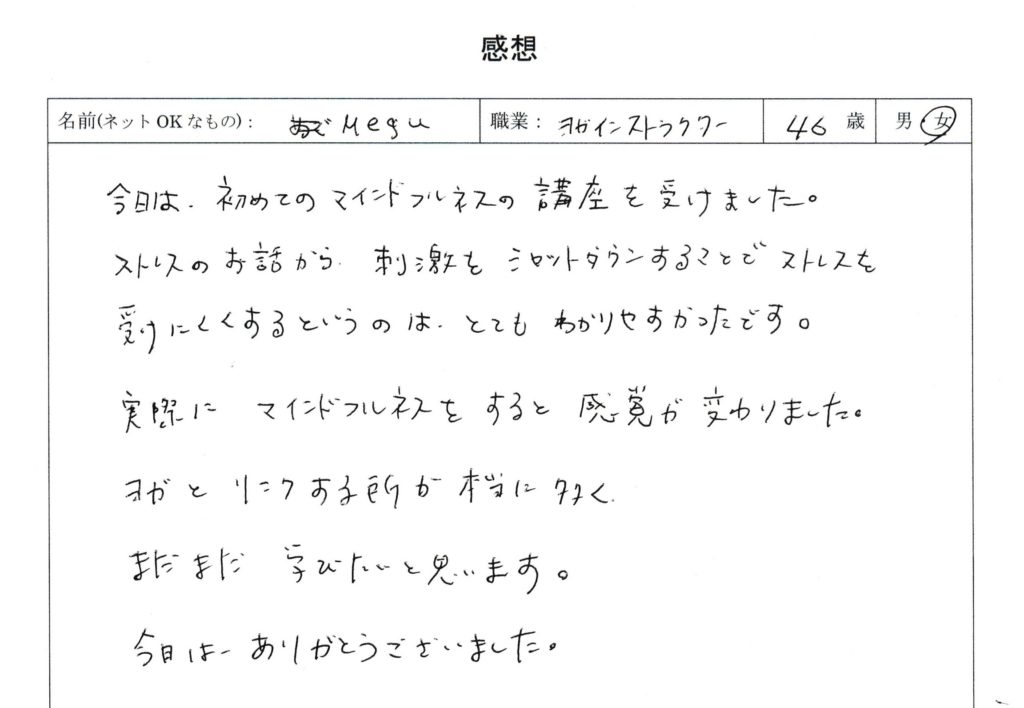 感想
名前(ネットOKなもの)： Megu 職業： ヨガインストラクター 46 歳 男 女
今日は、初めてのマインドフルネスの講座を受けました。
ストレスのお話から、刺激をシャットダウンすることでストレスを
受けにくくするというのは、とてもわかりやすかったです。
実際に マインドフルネスをすると感覚が変わりました。
ヨガとリンクする所が本当に多く、
まだまだ 学びたいと思います。
今日はーありがとうございました。